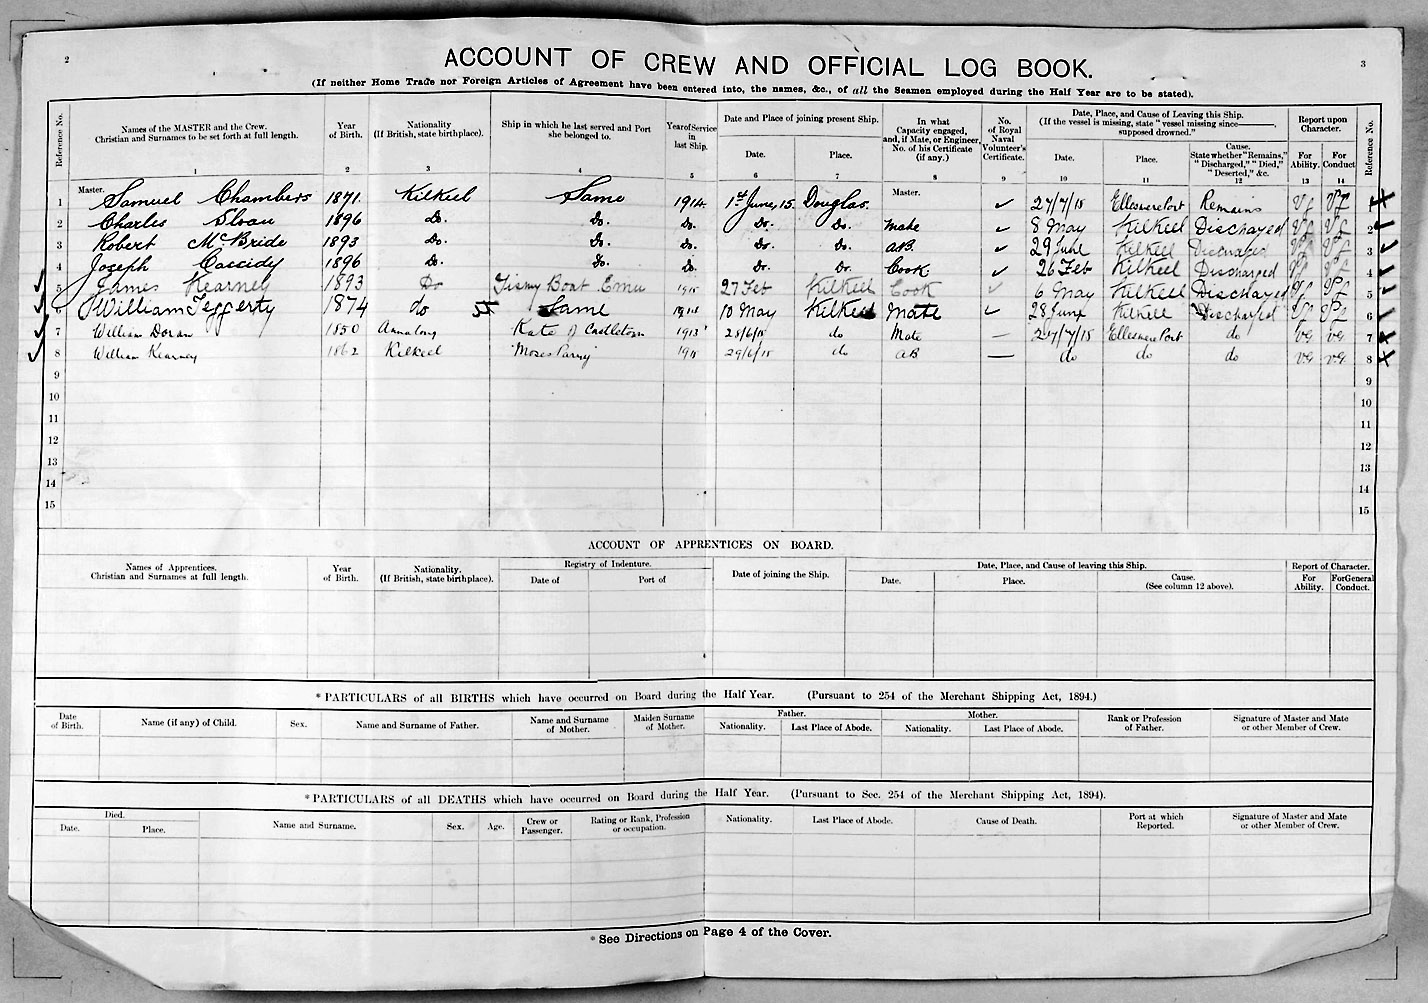 2
3
ACCOUNT OF CREW AND OFFICIAL LOG BOOK.
(If neither Home Trade nor Foreign Articles of Agreement have been entered into, the names, &c., of all the Seamen employed during the Half Year are to be stated).
Reference No. | Names of the MASTER and the Crew. Christian and Surnames to be set forth at full length. 1 | Year of Birth. 2 | Nationality (If British, state birthplace). 3 | Ship in which he last served and Port she belonged to. 4 | Year of Service in last Ship. 5 | Date and Place of joining present Ship. Date. 6 | Place. 7 | In what Capacity engaged, and, if Mate, or Engineer, No. of his Certificate (if any.) 8 | No. of Royal Naval Volunteer's Certificate. 9 | Date, Place, and Cause of Leaving this Ship. (If the vessel is missing, state "vessel missing since———, supposed drowned." Date. 10 | Place. 11 | Cause. State whether "Remains," "Discharged," "Died," "Deserted," &c. 12 | Report upon Character. For Ability. 13 | For Conduct 14 | Reference No.
1 Master. Samuel Chambers 1871. Kilkeel Same 1914. 1st June, 15. Douglas. Master. ✓ 27/7/15 Ellesmere Port Remains Vg Vg 1
2 Charles Sloan 1896 Do. Do. Do. Do. Do. Mate ✓ 8 May Kilkeel Discharged Vg Vg 2
3 Robert McBride 1893 Do. Do. Do. Do. Do. AB ✓ 29 June Kilkeel Discharged Vg Vg 3
4 Joseph Cassidy 1896 Do. Do. Do. Do. Do. Cook ✓ 26 Feb Kilkeel Discharged Vg Vg 4
5 James Kearney 1893 Do Boat Emu 1915 27 Feb Kilkeel Cook ✓ 6 May Kilkeel Discharged Vg Vg 5
6 William Teggerty 1874 do Same 10 May Kilkeel Mate ✓ 28 June Kilkeel Discharged Vg Vg 6
7 William Doran 1850 Annalong Kate of Castletown 1913 28/6/15 do Mate — 27/7/15 Ellesmere Port do VG VG 7
8 William Kearney 1862 Kilkeel "Moses Parry" 1915 29/6/15 do AB — do do do VG VG 8
9 9
10 10
11 11
12 12
13 13
14 14
15 15
ACCOUNT OF APPRENTICES ON BOARD.
Names of Apprentices. Christian and Surnames at full length. | Year of Birth. | Nationality. (If British, state birthplace). | Registry of Indenture. Date of | Port of | Date of joining the Ship. | Date, Place, and Cause of leaving this Ship. Date. | Place. | Cause. (See column 12 above). | Report of Character. For Ability. | For General Conduct.
*PARTICULARS of all BIRTHS which have occurred on Board during the Half Year. (Pursuant to 254 of the Merchant Shipping Act, 1894.)
Date of Birth. | Name (if any) of Child. | Sex. | Name and Surname of Father. | Name and Surname of Mother. | Maiden Surname of Mother. | Father. Nationality. | Last Place of Abode. | Mother. Nationality. | Last Place of Abode. | Rank or Profession of Father. | Signature of Master and Mate or other Member of Crew.
*PARTICULARS of all DEATHS which have occurred on Board during the Half Year. (Pursuant to Sec. 254 of the Merchant Shipping Act, 1894).
Died. Date. | Place. | Name and Surname. | Sex. | Age. | Crew or Passenger. | Rating or Rank, Profession or occupation. | Nationality. | Last Place of Abode. | Cause of Death. | Port at which Reported. | Signature of Master and Mate or other Member of Crew.
*See Directions on Page 4 of the Cover.